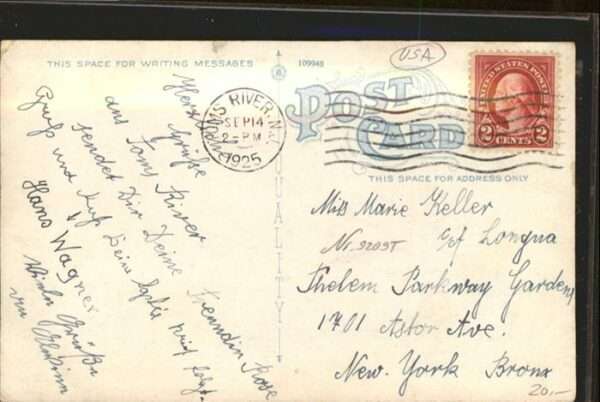 THIS SPACE FOR WRITING MESSAGES
109948
USA
TOMS RIVER, N.J.
SEP 14
2-PM
1925
UNITED STATES POST
2 CENTS 2
POST
CARD
THIS SPACE FOR ADDRESS ONLY
QUALITY
Herz. Grüße
aus Toms River
sendet Dir Deine
Freundin Rose
Gruß und Kuß Deine
Hans Wagner
Viele Grüße
von
Miss Marie Keller
c/f Longua
Thelem Parkway Gardens
1701 Astor Ave.
New. York Bronx
20,-